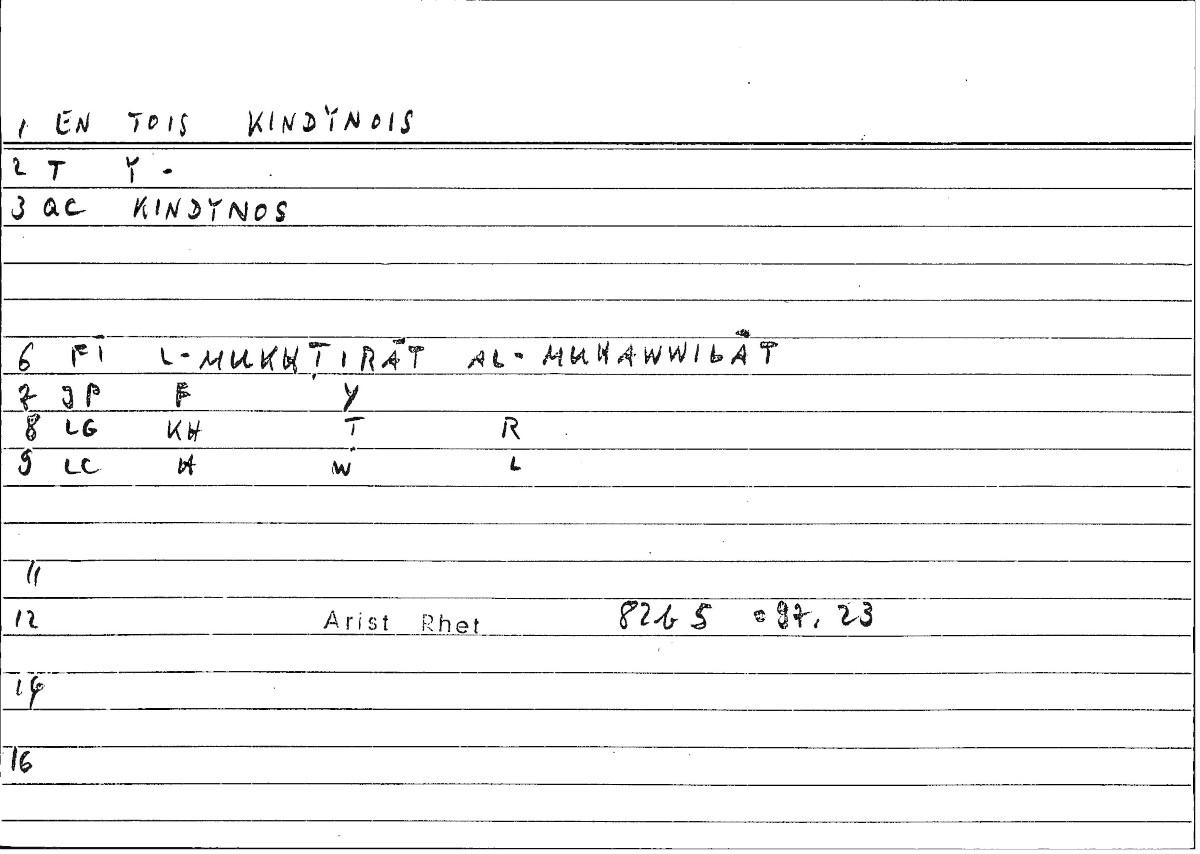 1 EN TOIS KINDYNOIS
2 T Y -
3 QC KINDYNOS
6 FĪ L-MUKHṬIRĀT AL-MUHAWWILĀT
7 JP F Y
8 LG KH Ṭ R
9 LC H W L
11
12 Arist Rhet 82b5 = 97.23
14
16